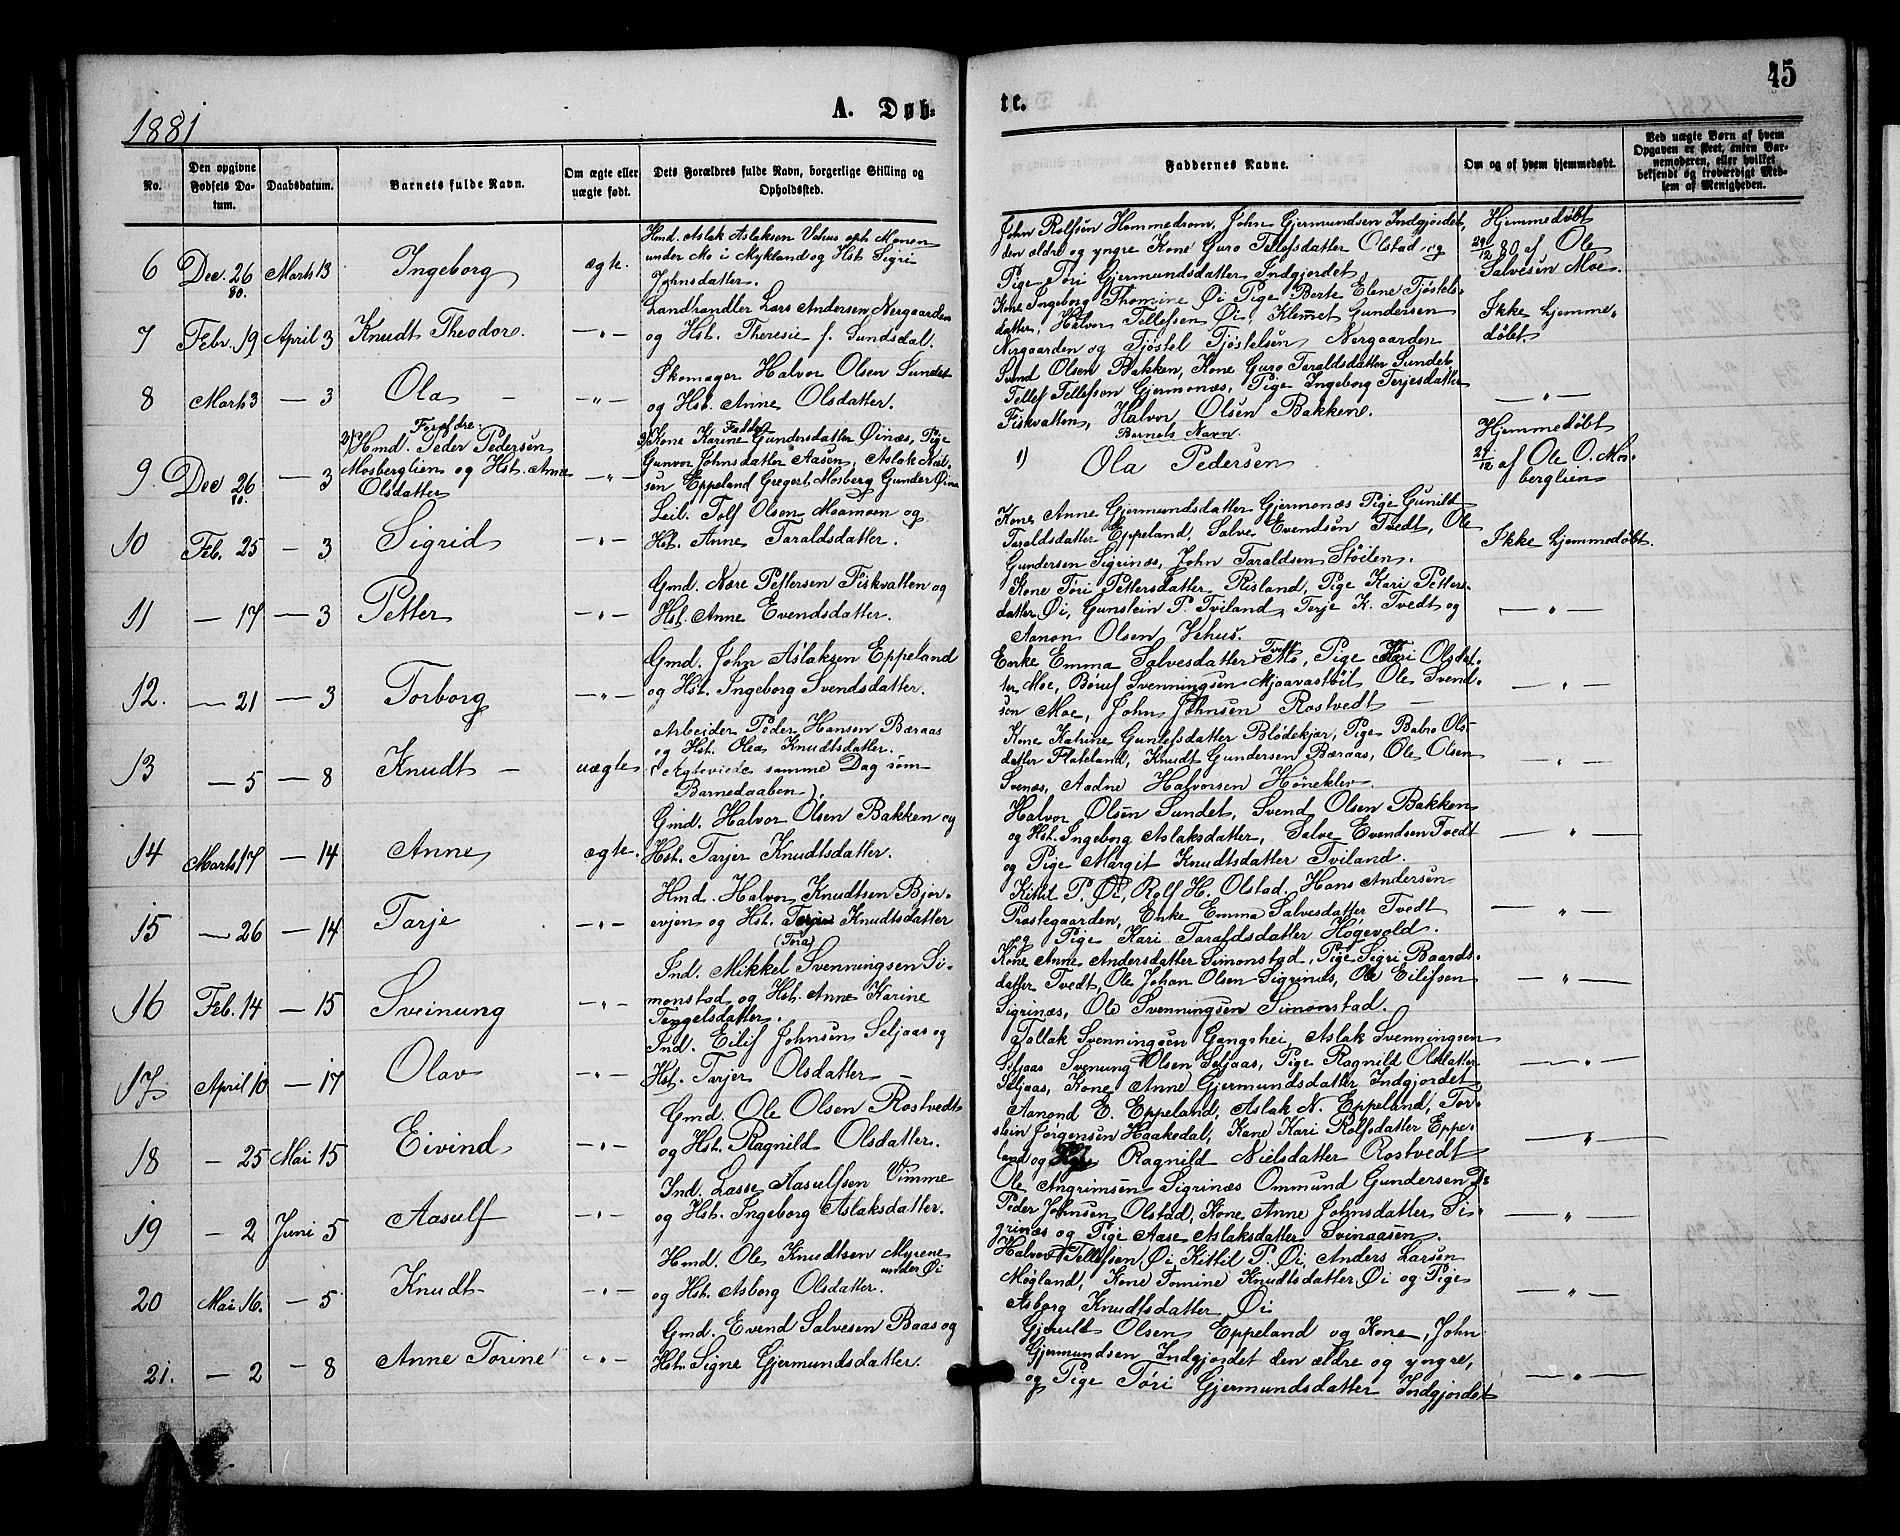 45
1881
A. Døb-
te.
No.
Den opgivne Fødsels Da-tum.
Daabsdatum.
Barnets fulde Navn.
Om ægte eller uægte født.
Dets Forældres fulde Navn, borgerlige Stilling og Opholdssted.
Faddernes Navne.
Om og af hvem hjemmedøbt.
Ved uægte Børn af hvem Opgaven er skeet, enten Bar-nemoderen, eller hvilket bekjendt og troværdigt Med-lem af Menigheden.
6 Dec. 26 80. Marts 13 Ingeborg ægte.
Hmd. Aslak Aslaksen Vehus oph. Monen
under Mo i Mykland og Hst. Sigri
Johnsdatter.
John Rolfsen Hommedrom, John Gjermundsen Indgjordet,
den ældre og yngre Kone Guro Tellefsdatter Olstad og
Pige Tori Gjermundsdatter Indgjordet
Hjemmedøbt
29/12 80 af Ole
Salvesen Moe.
7 Febr. 19 April 3 Knudt Theodor. — " —
Landhandler Lars Andersen Nergaarden
og Hst. Theresie f. Sundsdal.
Kone Ingeborg Thomine Øi Pige Berte Elene Tjøstels-
datter, Halvor Tellefsen Øi, Klemet Gundersen
Nergaarden og Tjøstel Tjøstelsen Nergaarden
Ikke hjemme-
døbt.
8 Marts 3 — 3 Ola — — " —
Skomager Halvor Olsen Sundet
og Hst. Anne Olsdatter.
Svend Olsen Bakken, Kone Guro Taraldsdatter Sundet,
Tellef Tellefson Gjermonæs, Pige Ingeborg Terjesdatter
Fiskvatten, Halvor Olsen Bakken.
— " —
9 Dec 26 80. — 3
Forældre:
2) Hmd. Peder Pedersen
Mosberglien og Hst. Anne
Olsdatter
— " —
Faddere
3) Kone Karine Gundersdatter Øinæs, Pige
Gunvor Johnsdatter Aasen, Aslak Niel-
sen Eppeland Gregert Mosberg Gunder Øinæs
Barnets Navn.
1) Ola Pedersen
Hjemmedøbt
27/12 af Ole O. Mos-
berglien
10 Feb. 25 — 3 Sigrid — " —
Leil. Tolf Olsen Moamoen og
Hst. Anne Taraldsdatter.
Kone Anne Gjermundsdatter Gjermonæs Pige Gunild
Taraldsdatter Eppeland, Salve Evendsen Tvedt, Ole
Gundersen Sigrinæs, John Taraldsen Støilen.
Ikke hjemmedøbt.
11 — 17 — 3 Petter — " —
Gmd. Nære Pettersen Fiskvatten og
Hst. Anne Evendsdatter.
Kone Tori Pettersdatter Risland, Pige Kari Petters-
datter Øi, Gunstein P. Tviland, Terje K. Tvedt og
Aanon Olsen Vehus.
— " —
12. — 21 — 3 Torborg — " —
Gmd. John Aslaksen Eppeland
og Hst. Ingeborg Svendsdatter.
Enke Emma Salvesdatter Tvedt Mo, Pige Kari Olsdat-
ter Moe, Børuf Svenningsen Mjaavastøil Ole Svend-
sen Moe, John Johnsen Rostvedt —
— " —
13 — 5 — 8 Knudt — uægte
Arbeider Peder Hansen Bæraas
og Hst. Olea Knudtsdatter.
(Ægteviede samme Dag som
Barnedaaben).
Kone Katrine Gunlefsdatter Blødekjær, Pige Babro Ols-
datter Flateland, Knudt Gundersen Bæraas, Ole Olsen
Svenæs, Aadne Halvorsen Høneklev
— " —
14 Marts 17 — 14 Anne ægte.
Gmd. Halvor Olsen Bakken og
Hst. Tarjer Knudtsdatter.
Halvor Olsen Sundet, Svend Olsen Bakken
og Hst. Ingeborg Aslaksdatter, Salve Evendsen Tvedt
og Pige Margit Knudtsdatter Tviland.
— " —
15 — 26 — 14 Tarje — " —
Hmd. Halvor Knudtsen Bjor-
evjen og Hst. Terjer Knudtsdatter
(Tora)
Kittil P. Øi, Rolf H. Olstad, Hans Andersen
Præstegaarden, Enke Emma Salvesdatter Tvedt
og Pige Kari Taraldsdatter Høgevold.
— " —
16 Feb. 14 — 15 Sveinung — " —
Ind. Mikkel Svenningsen Si-
monstad og Hst. Anne Karine
Tengelsdatter.
Kone Anne Andersdatter Simonstad, Pige Sigri Baards-
datter Tvedt, Ole Johan Olsen Sigrinæs, Ole Eilifsen
Sigrinæs, Ole Svenningsen Simonstad.
— " —
17. April 10 — 17 Olav — " —
Ind. Eilif Johnsen Seljaas og
Hst. Tarjer Olsdatter —
Tallak Svenningsen Gangshei, Aslak Svenningsen
Seljaas Svenung Olsen Seljaas, Pige Ragnild Olsdatter
Seljaas, Kone Anne Gjermundsdatter Indgjordet
— " —
18 — 25 Mai 15 Eivind — " —
Gmd. Ole Olsen Rostvedt
og Hst. Ragnild Olsdatter.
Aanond E. Eppeland, Aslak N. Eppeland, Tor-
stein Jørgensen Haakedal, Kone Kari Rolfsdatter Eppe-
land og Ragnild Nielsdatter Rostvedt
— " —
19 — 2 Juni 5 Aasulf — " —
Ind. Lasse Aasulfsen Vimme
og Hst. Ingeborg Aslaksdatter.
Ole Angrimsen Sigrinæs Ommund Gundersen
Peder Johnsen Olstad, Kone Anne Johnsdatter Si-
grinæs og Pige Aase Aslaksdatter Svinaasen.
— " —
20 Mai 16. — 5 Knudt — " —
Hmd. Ole Knudtsen Myrene
under Øi
og Hst. Asborg Olsdatter.
Halvor Tellefsen Øi Kittil P. Øi, Anders Larsen
Møgland, Kone Tomine Knudtsdatter Øi og Pige
Asborg Knudtsdatter Øi
— " —
21. — 2 — 8 Anne Torine — " —
Gmd. Evend Salvesen Baas og
Hst. Signe Gjermundsdatter.
Olsen Eppeland og Kone, John
Gjermundsen Indgjordet den ældre og yngre,
og Pige Tori Gjermundsdatter Indgjordet
— " —